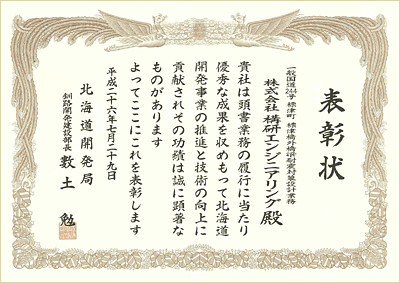 表彰状
一般国道244号 標津町 標津橋外橋梁耐震補強設計業務
株式会社 構研エンジニアリング 殿
貴社は頭書業務の履行に当たり
優秀な成果を収めもって北海道
開発事業の推進と技術の向上に
貢献されその功績は誠に顕著な
ものがあります
よってここにこれを表彰します
平成二十六年七月二十九日
北海道開発局
釧路開発建設部長 数土 勉